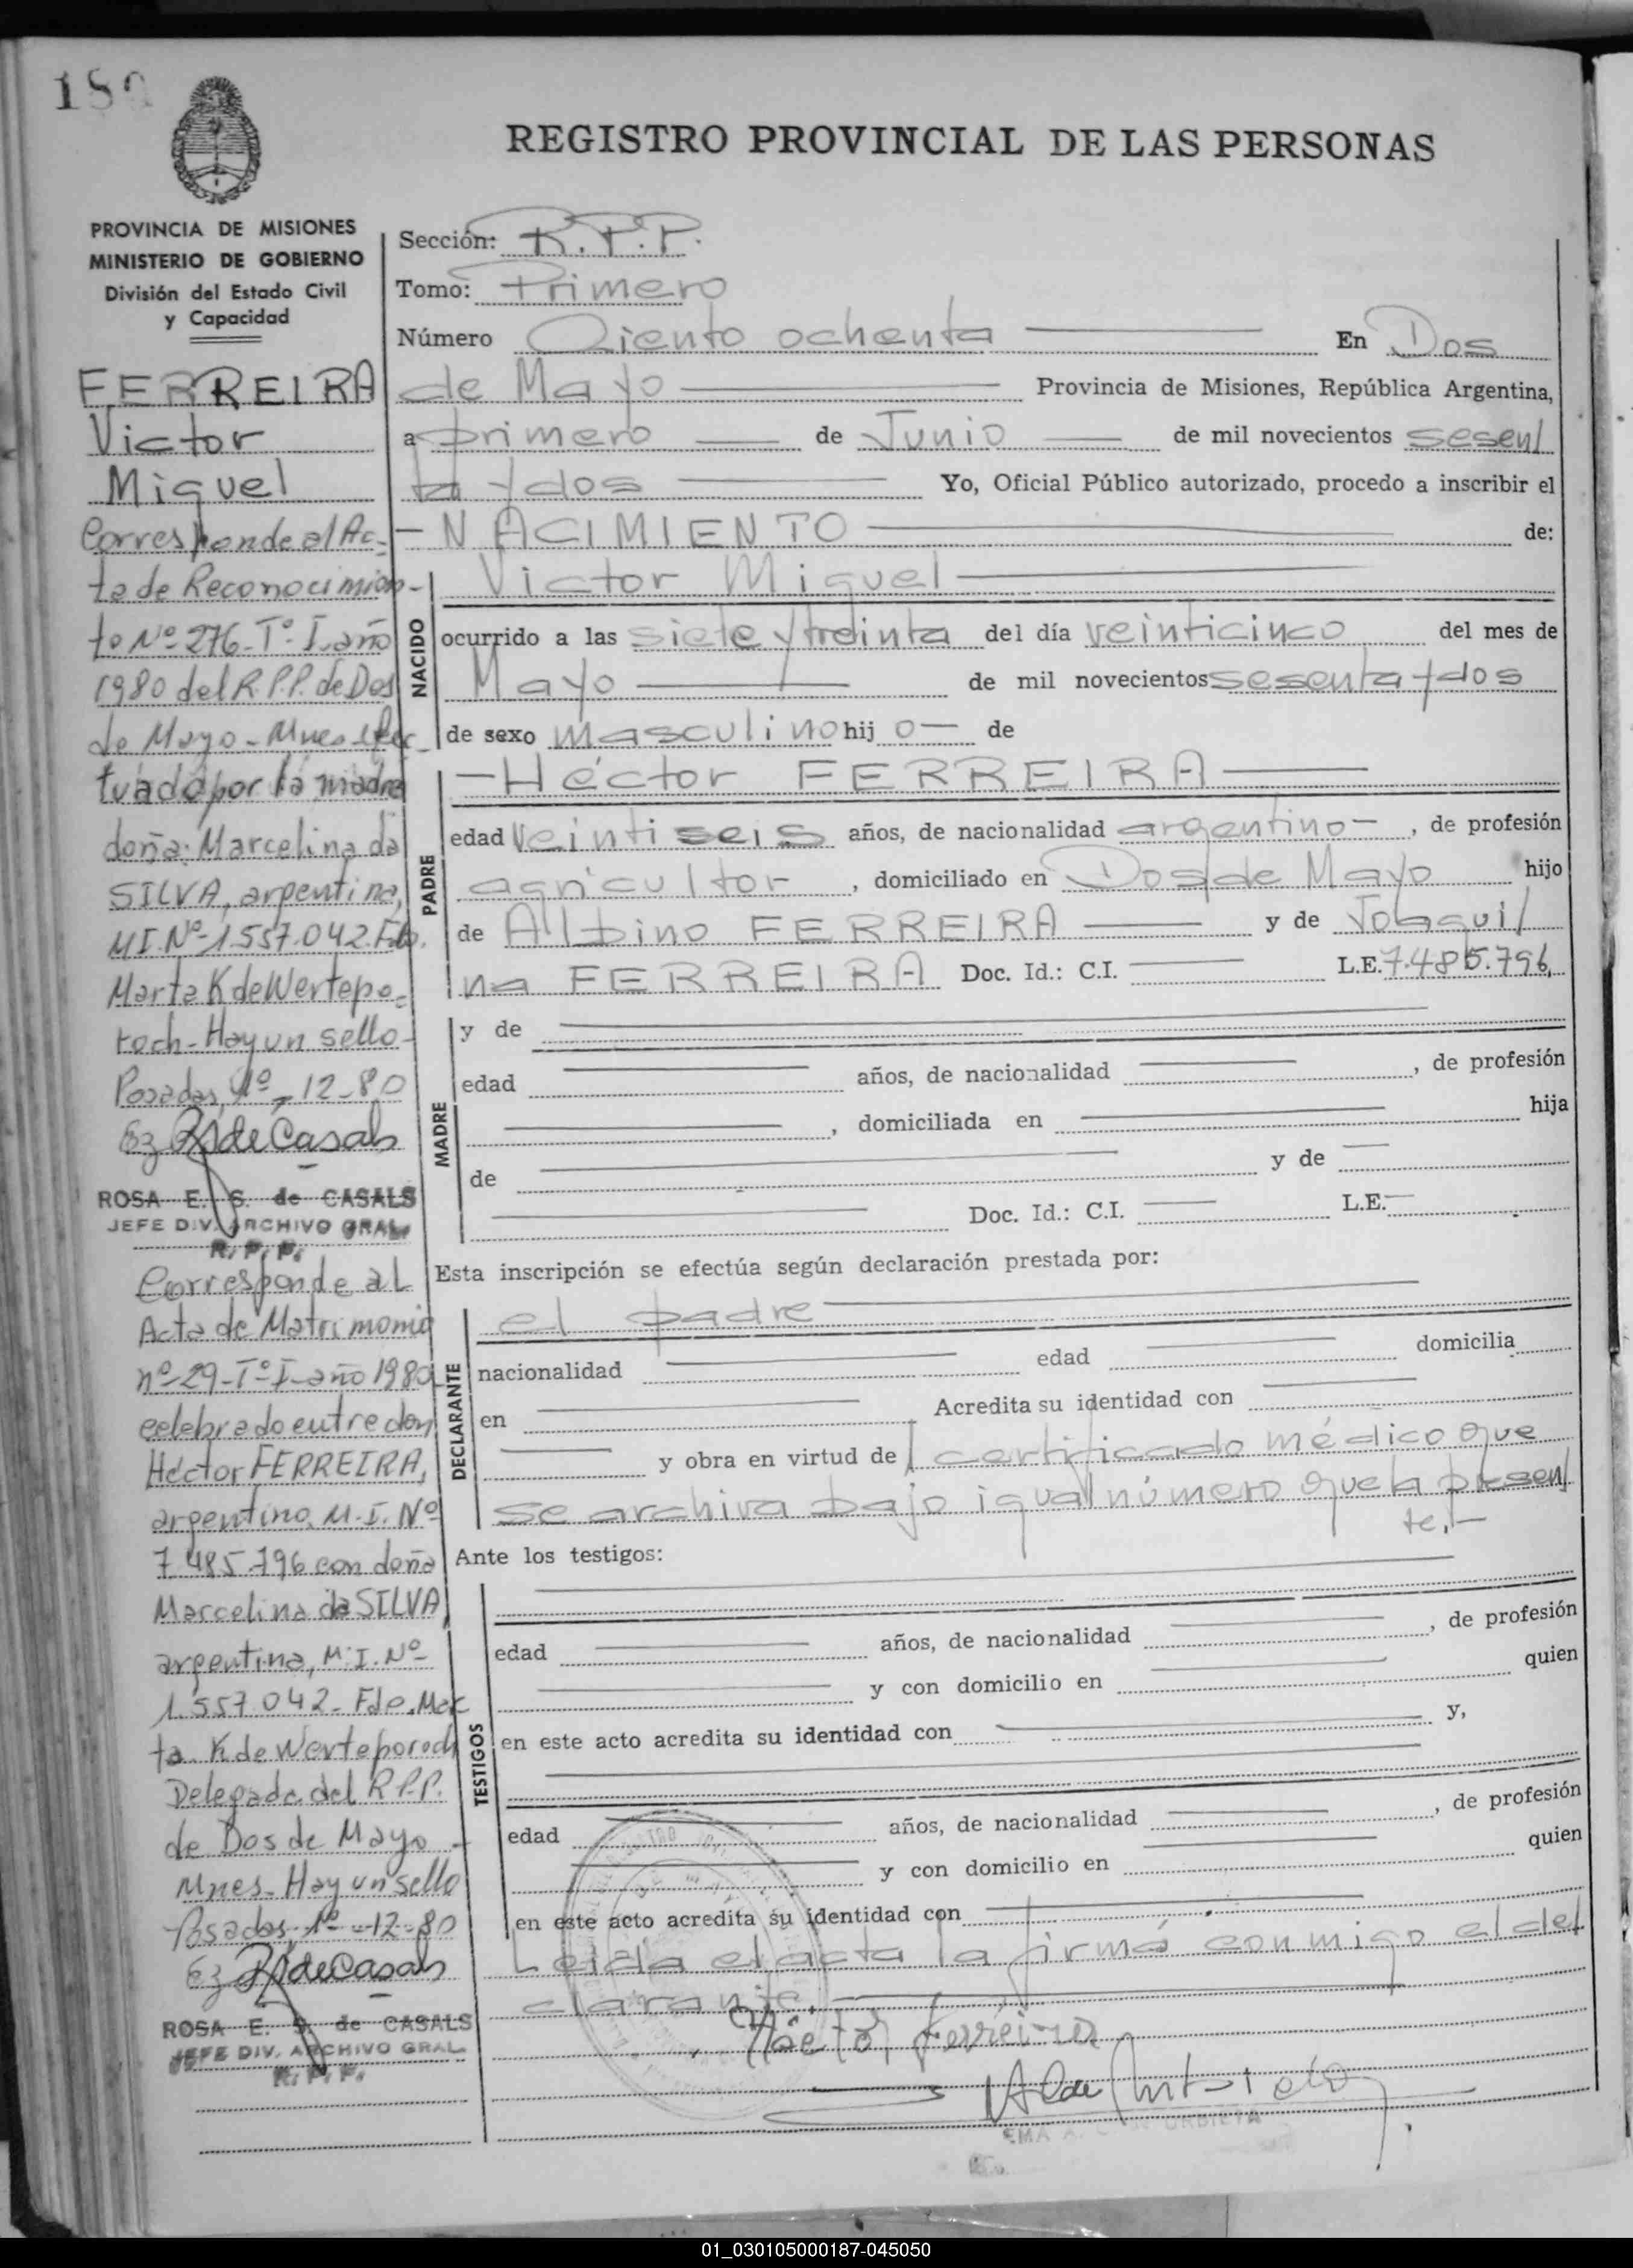 180
REGISTRO PROVINCIAL DE LAS PERSONAS
PROVINCIA DE MISIONES
MINISTERIO DE GOBIERNO
División del Estado Civil
y Capacidad
FERREIRA
Victor
Miguel
Corresponde al Ac-
ta de Reconocimien-
to Nº 276-Tº I-año
1980 del R.P.P. de Dos
de Mayo - Mnes efec-
tuado por la madre
doña: Marcelina da
SILVA, argentina,
MI. Nº 1.557.042. Fdo.
Marta K de Wertepo-
roch - Hay un sello-
Posadas, 1º-12-80
R de Casals
ROSA E. S. de CASALS
JEFE DIV. ARCHIVO GRAL.
R. P. P.
Corresponde al
Acta de Matrimonio
nº-29-Tº I-año 1980
celebrado entre don
Héctor FERREIRA,
argentino, M.I. Nº
7.485.796 con doña
Marcelina da SILVA
argentina, M.I. Nº
1.557.042- Fdo. Mar
ta K de Werteporoch
Delegada del R.P.P.
de Dos de Mayo -
Mnes- Hay un sello
Posadas, 1º-12-80
R de Casals
ROSA E. S. de CASALS
JEFE DIV. ARCHIVO GRAL.
R. P. P.
Sección: R.P.P.
Tomo: Primero
Número Ciento ochenta En Dos
de Mayo Provincia de Misiones, República Argentina,
a primero de Junio de mil novecientos sesen/
ta y dos Yo, Oficial Público autorizado, procedo a inscribir el
- NACIMIENTO de:
NACIDO
Victor Miguel
ocurrido a las siete y treinta del día veinticinco del mes de
Mayo de mil novecientos sesenta y dos
de sexo masculino hij o de
PADRE
-Héctor FERREIRA
edad veintiseis años, de nacionalidad argentino-, de profesión
agricultor, domiciliado en Dos de Mayo hijo
de Albino FERREIRA y de Joaquil/
na FERREIRA Doc. Id.: C.I. L.E. 7.485.796,
MADRE
y de
edad años, de nacionalidad , de profesión
, domiciliada en hija
de y de
Doc. Id.: C.I. L.E.
Esta inscripción se efectúa según declaración prestada por:
DECLARANTE
el padre
nacionalidad edad domicilia
en Acredita su identidad con
y obra en virtud de / certificado médico que
se archiva bajo igual número que la presen/
te.-
Ante los testigos:
TESTIGOS
edad años, de nacionalidad , de profesión
y con domicilio en quien
en este acto acredita su identidad con y,
edad años, de nacionalidad , de profesión
y con domicilio en quien
en este acto acredita su identidad con
Leida el acta la firmá conmigo el de/
clarante.
Héctor Ferreira
01_030105000187-045050